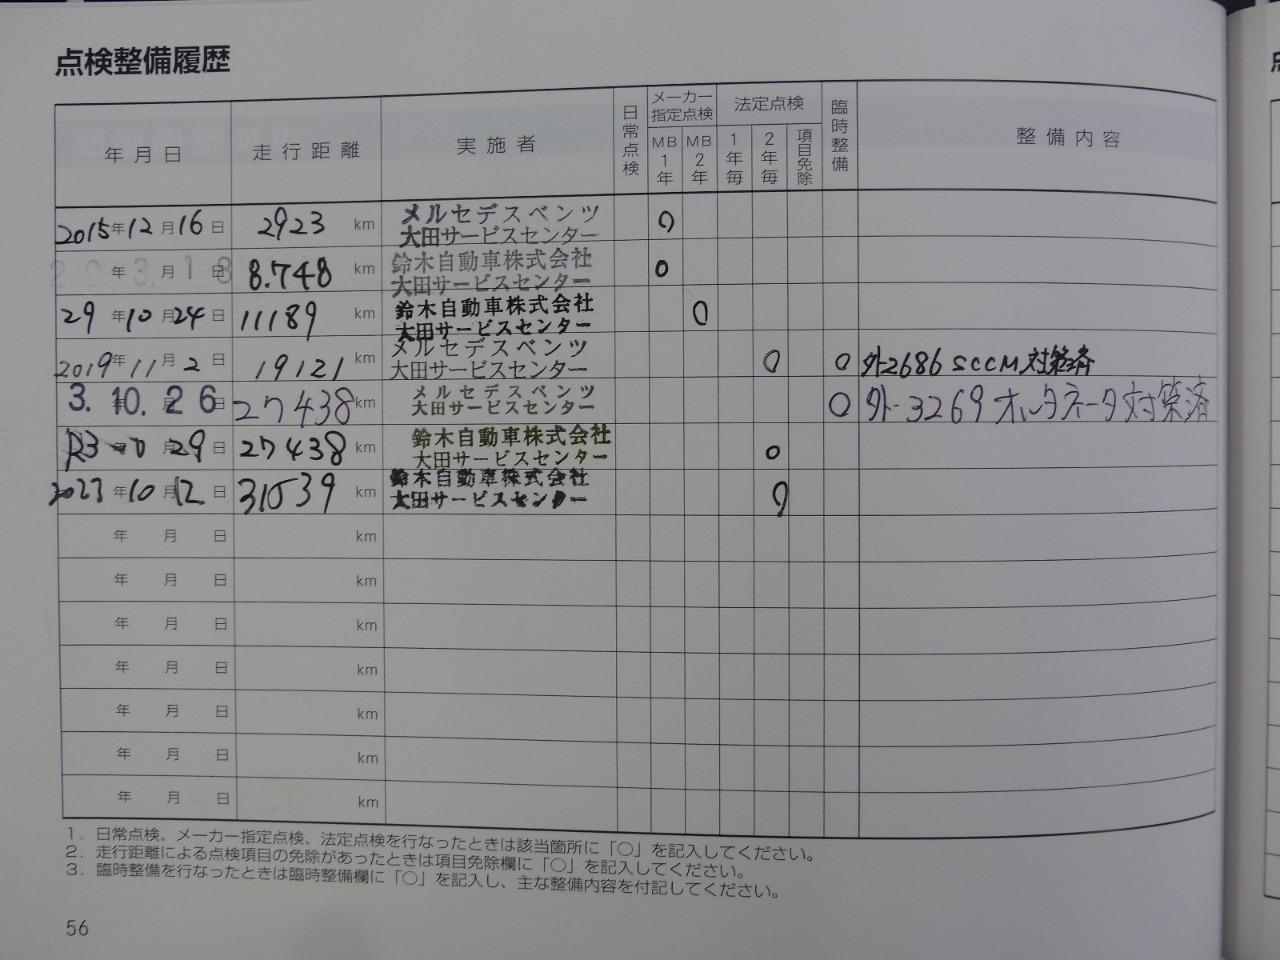 点検整備履歴
年月日 走行距離 実施者 日常点検 メーカー指定点検 MB1年 MB2年 法定点検 1年毎 2年毎 項目免除 臨時整備 整備内容
2015年12月16日 2923 km メルセデスベンツ
大田サービスセンター
年 月 日 8.748 km 鈴木自動車株式会社
大田サービスセンター
29年10月24日 11189 km 鈴木自動車株式会社
大田サービスセンター
2019年11月2日 19121 km メルセデスベンツ
大田サービスセンター ○ ○ 外2686 SCCM対策済
3.10.26 27438 km メルセデスベンツ
大田サービスセンター ○ 外-3269 オルタネータ対策済
R3 年 月29日 27438 km 鈴木自動車株式会社
大田サービスセンター
2023年10月12日 31539 km 鈴木自動車株式会社
大田サービスセンター
年 月 日 km
年 月 日 km
年 月 日 km
年 月 日 km
年 月 日 km
年 月 日 km
年 月 日 km
1．日常点検、メーカー指定点検、法定点検を行なったときは該当箇所に「○」を記入してください。
2．走行距離による点検項目の免除があったときは項目免除欄に「○」を記入してください。
3．臨時整備を行なったときは臨時整備欄に「○」を記入し、主な整備内容を付記してください。
56